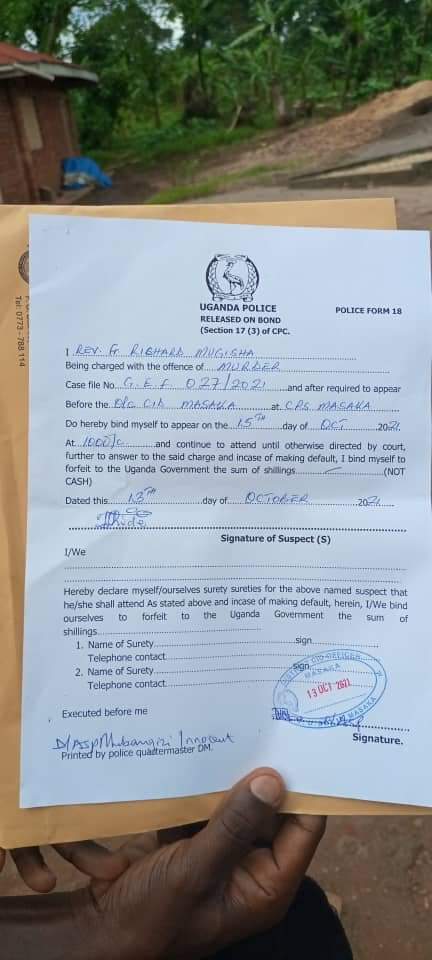 Tel: 0773 - 788 114
UGANDA POLICE
POLICE FORM 18
RELEASED ON BOND
(Section 17 (3) of CPC.
I REV. Fr RICHARD MUGISHA
Being charged with the offence of MURDER
Case file No. G.E.F 027/2021 and after required to appear
Before the O/C CID MASAKA at CPS MASAKA
Do hereby bind myself to appear on the 15TH day of OCT 2021
At 1000/c and continue to attend until otherwise directed by court,
further to answer to the said charge and incase of making default, I bind myself to
forfeit to the Uganda Government the sum of shillings (NOT
CASH)
Dated this 13TH day of OCTOBER 2021
Signature of Suspect (S)
I/We
Hereby declare myself/ourselves surety sureties for the above named suspect that
he/she shall attend As stated above and incase of making default, herein, I/We bind
ourselves to forfeit to the Uganda Government the sum of
shillings
1. Name of Surety sign
Telephone contact
2. Name of Surety sign
Telephone contact
CID OFFICER
MASAKA
13 OCT 2021
MASAKA
Executed before me
D/ASP Muhangizi Innocent
Signature.
Printed by police quartermaster DM.